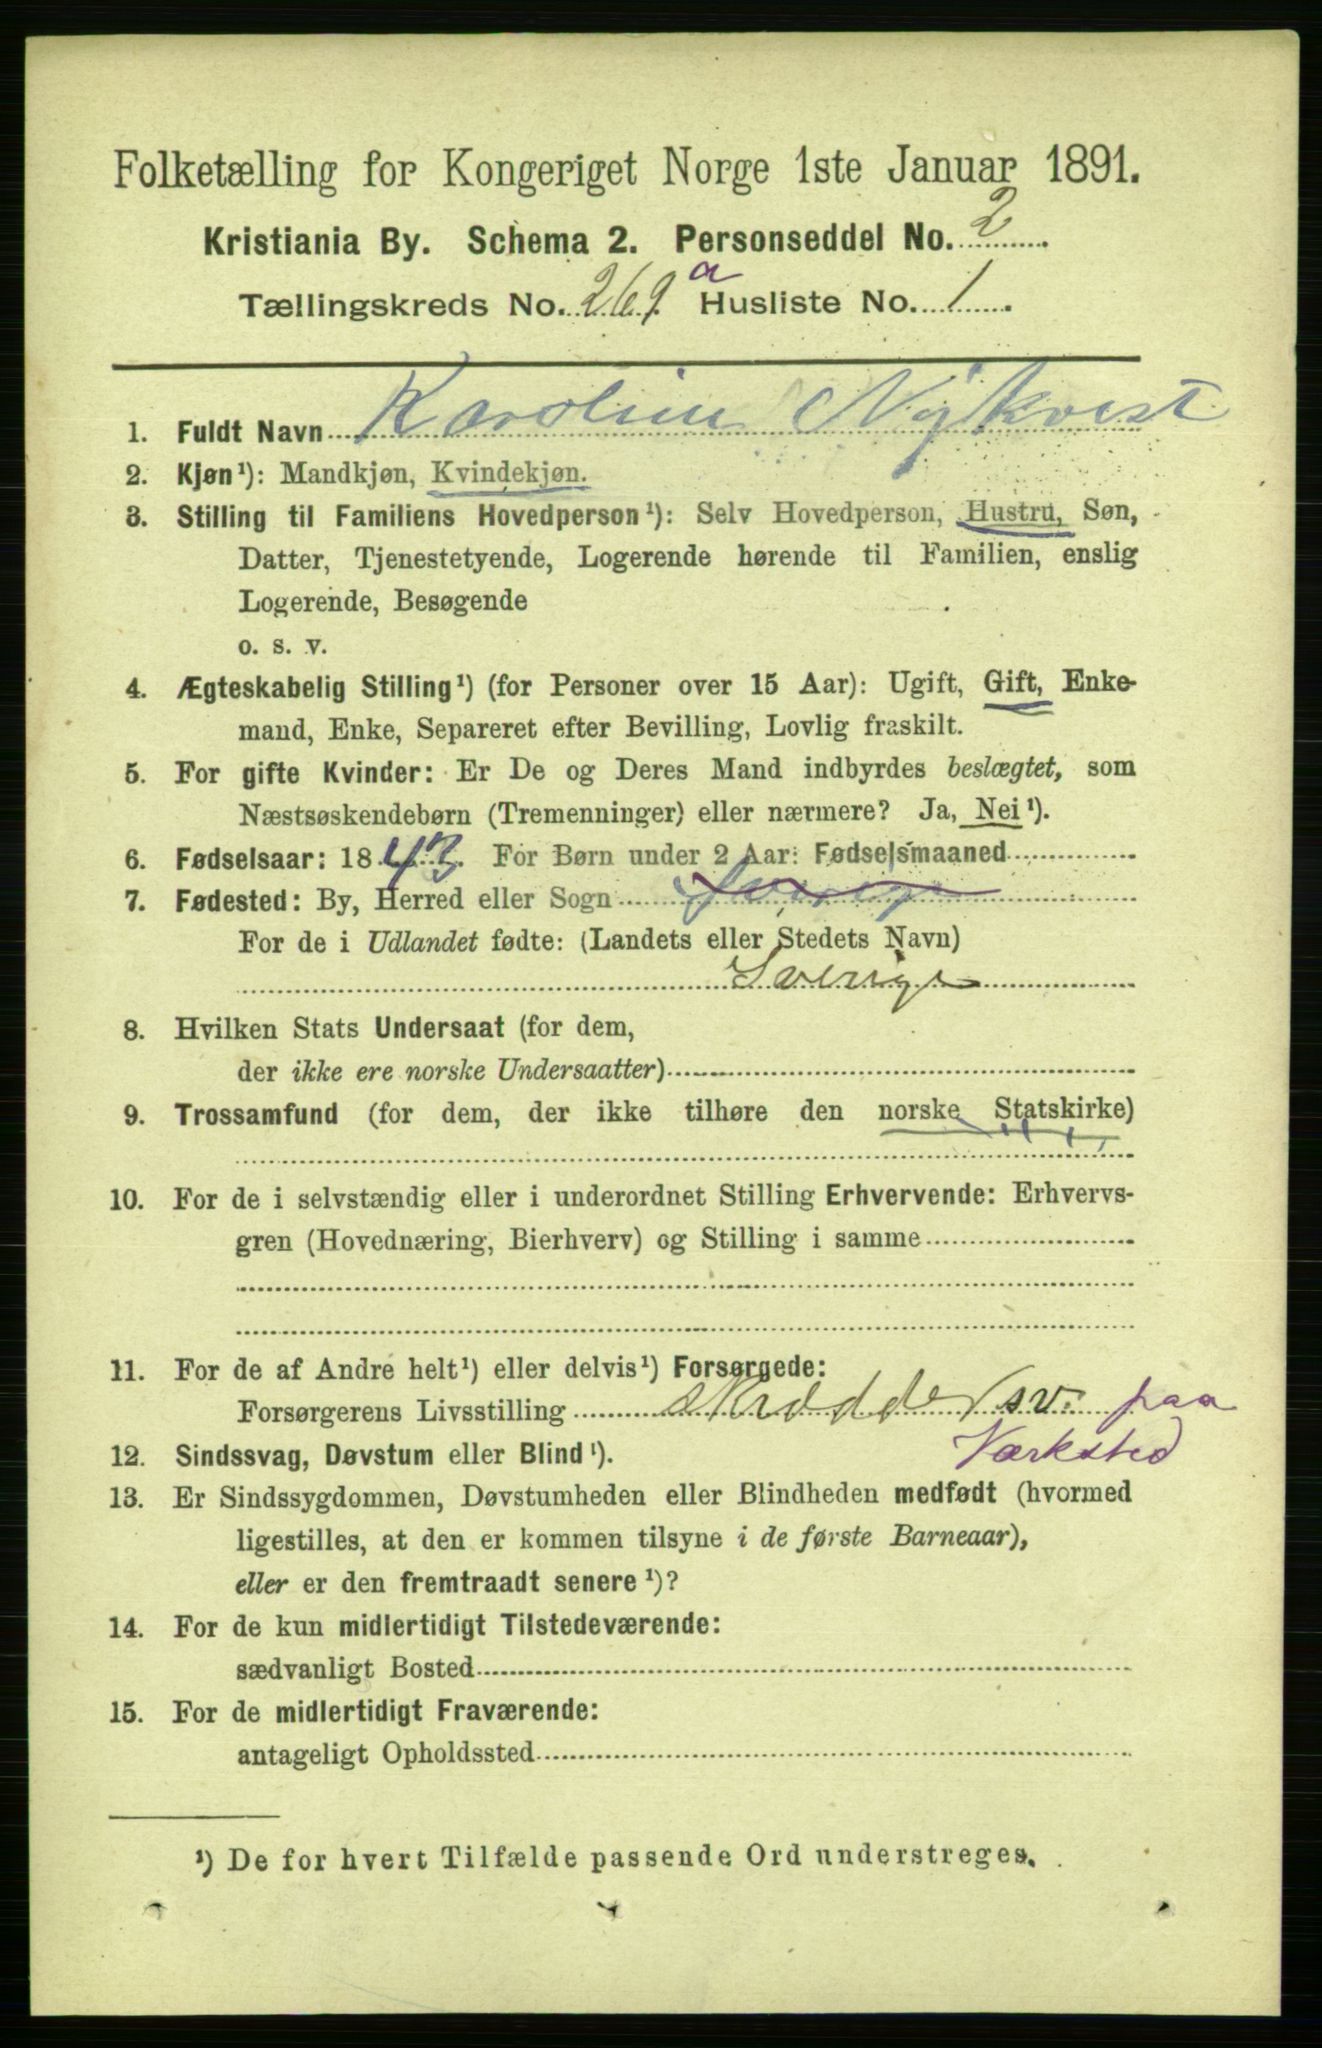 Folketælling for Kongeriget Norge 1ste Januar 1891.
Kristiania By. Schema 2. Personseddel No. 2
Tællingskreds No. 269 a Husliste No. 1
1. Fuldt Navn Karoline Nykvist
2. Kjøn¹): Mandkjøn, Kvindekjøn.
3. Stilling til Familiens Hovedperson¹): Selv Hovedperson, Hustru, Søn,
Datter, Tjenestetyende, Logerende hørende til Familien, enslig
Logerende, Besøgende
o. s. v.
4. Ægteskabelig Stilling¹) (for Personer over 15 Aar): Ugift, Gift, Enke-
mand, Enke, Separeret efter Bevilling, Lovlig fraskilt.
5. For gifte Kvinder: Er De og Deres Mand indbyrdes beslægtet, som
Næstsøskendebørn (Tremenninger) eller nærmere? Ja, Nei¹).
6. Fødselsaar: 1843. For Børn under 2 Aar: Fødselsmaaned
7. Fødested: By, Herred eller Sogn Sverige
For de i Udlandet fødte: (Landets eller Stedets Navn)
Sverige
8. Hvilken Stats Undersaat (for dem,
der ikke ere norske Undersaatter)
9. Trossamfund (for dem, der ikke tilhøre den norske Statskirke)
10. For de i selvstændig eller i underordnet Stilling Erhvervende: Erhvervs-
gren (Hovednæring, Bierhverv) og Stilling i samme
11. For de af Andre helt¹) eller delvis¹) Forsørgede:
Forsørgerens Livsstilling skrædder sv. paa
Værksted
12. Sindssvag, Døvstum eller Blind¹).
13. Er Sindssygdommen, Døvstumheden eller Blindheden medfødt (hvormed
ligestilles, at den er kommen tilsyne i de første Barneaar),
eller er den fremtraadt senere¹)?
14. For de kun midlertidigt Tilstedeværende:
sædvanligt Bosted
15. For de midlertidigt Fraværende:
antageligt Opholdssted
¹) De for hvert Tilfælde passende Ord understreges.